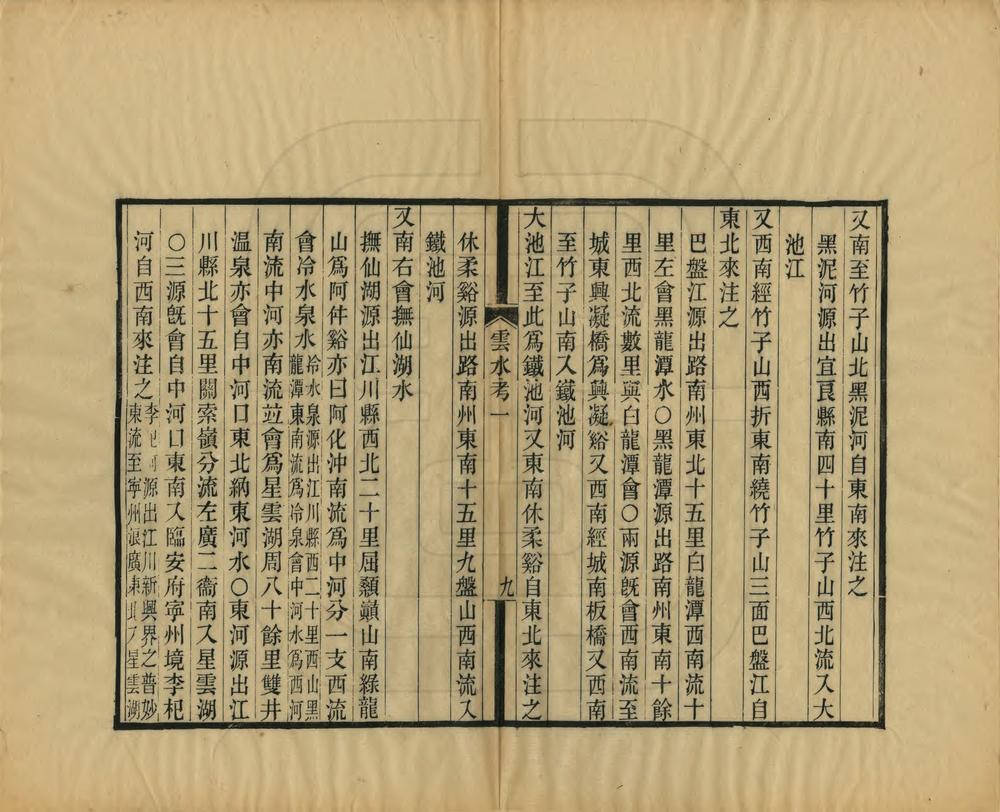 又南至竹子山北黑泥河自東南來注之
黑泥河源出宜良縣南四十里竹子山西北流入大
池江
又西南經竹子山西折東南繞竹子山三面巴盤江自
東北來注之
巴盤江源出路南州東北十五里白龍潭西南流十
里左會黑龍潭水〇黑龍潭源出路南州東南十餘
里西北流數里與白龍潭會〇兩源旣會西南流至
城東興凝橋爲興凝谿又西南經城南板橋又西南
至竹子山南入鐵池河
大池江至此爲鐵池河又東南休柔谿自東北來注之
雲水考一
九
休柔谿源出路南州東南十五里九盤山西南流入
鐵池河
又南右會撫仙湖水
撫仙湖源出江川縣西北二十里屈顙巔山南綠龍
山爲阿件谿亦曰阿化沖南流爲中河分一支西流
會冷水泉水冷水泉源出江川縣西二十里西山黑
龍潭東南流爲冷泉會中河水爲西河
南流中河亦南流竝會爲星雲湖周八十餘里雙井
溫泉亦會自中河口東北納東河水〇東河源出江
川縣北十五里關索嶺分流左廣二衞南入星雲湖
〇三源旣會自中河口東南入臨安府寧州境李杞
河自西南來注之李河源出江川新興界之普妙
東流至寧州廣東北入星雲湖